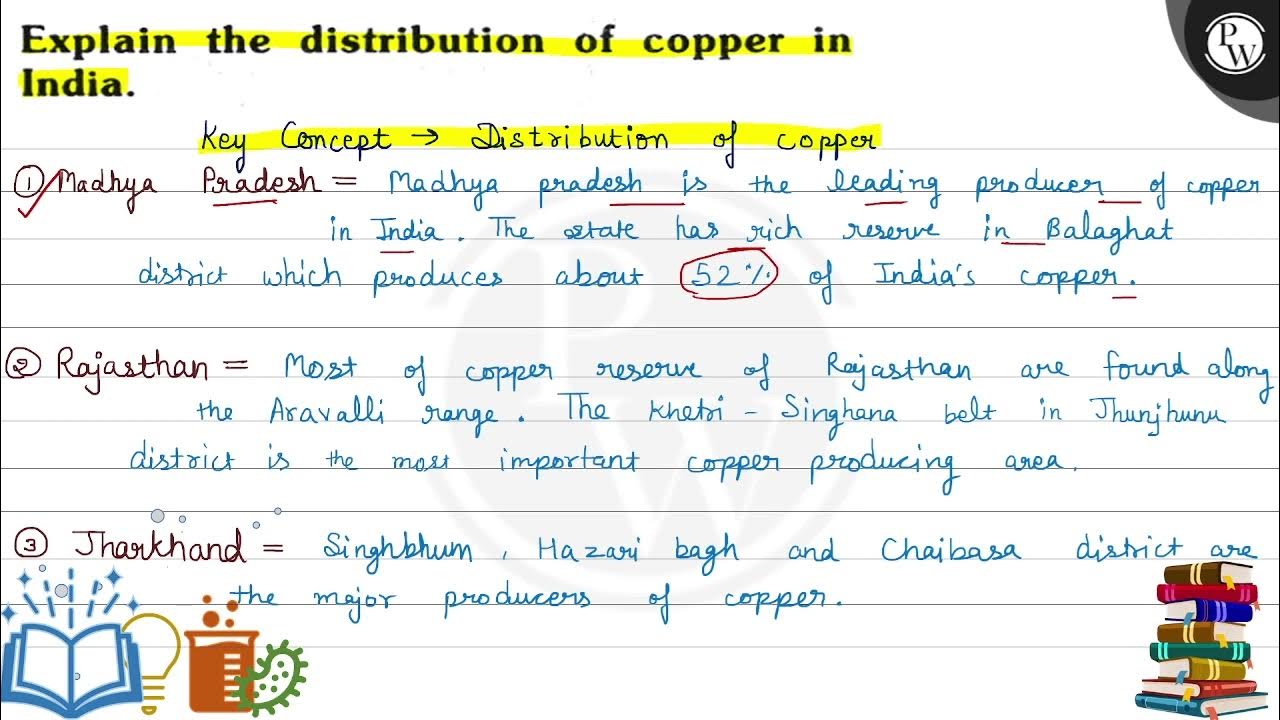 Explain the distribution of copper in
India.
PW
Key Concept → Distribution of copper
① Madhya Pradesh = Madhya pradesh is the leading producer of copper
in India. The state has rich reserve in Balaghat
district which produces about 52% of India's copper.
② Rajasthan = Most of copper reserve of Rajasthan are found along
the Aravalli range. The Khetri - Singhana belt in Jhunjhunu
district is the most important copper producing area.
③ Jharkhand = Singhbhum, Hazari bagh and Chaibasa district are
the major producers of copper.
PW